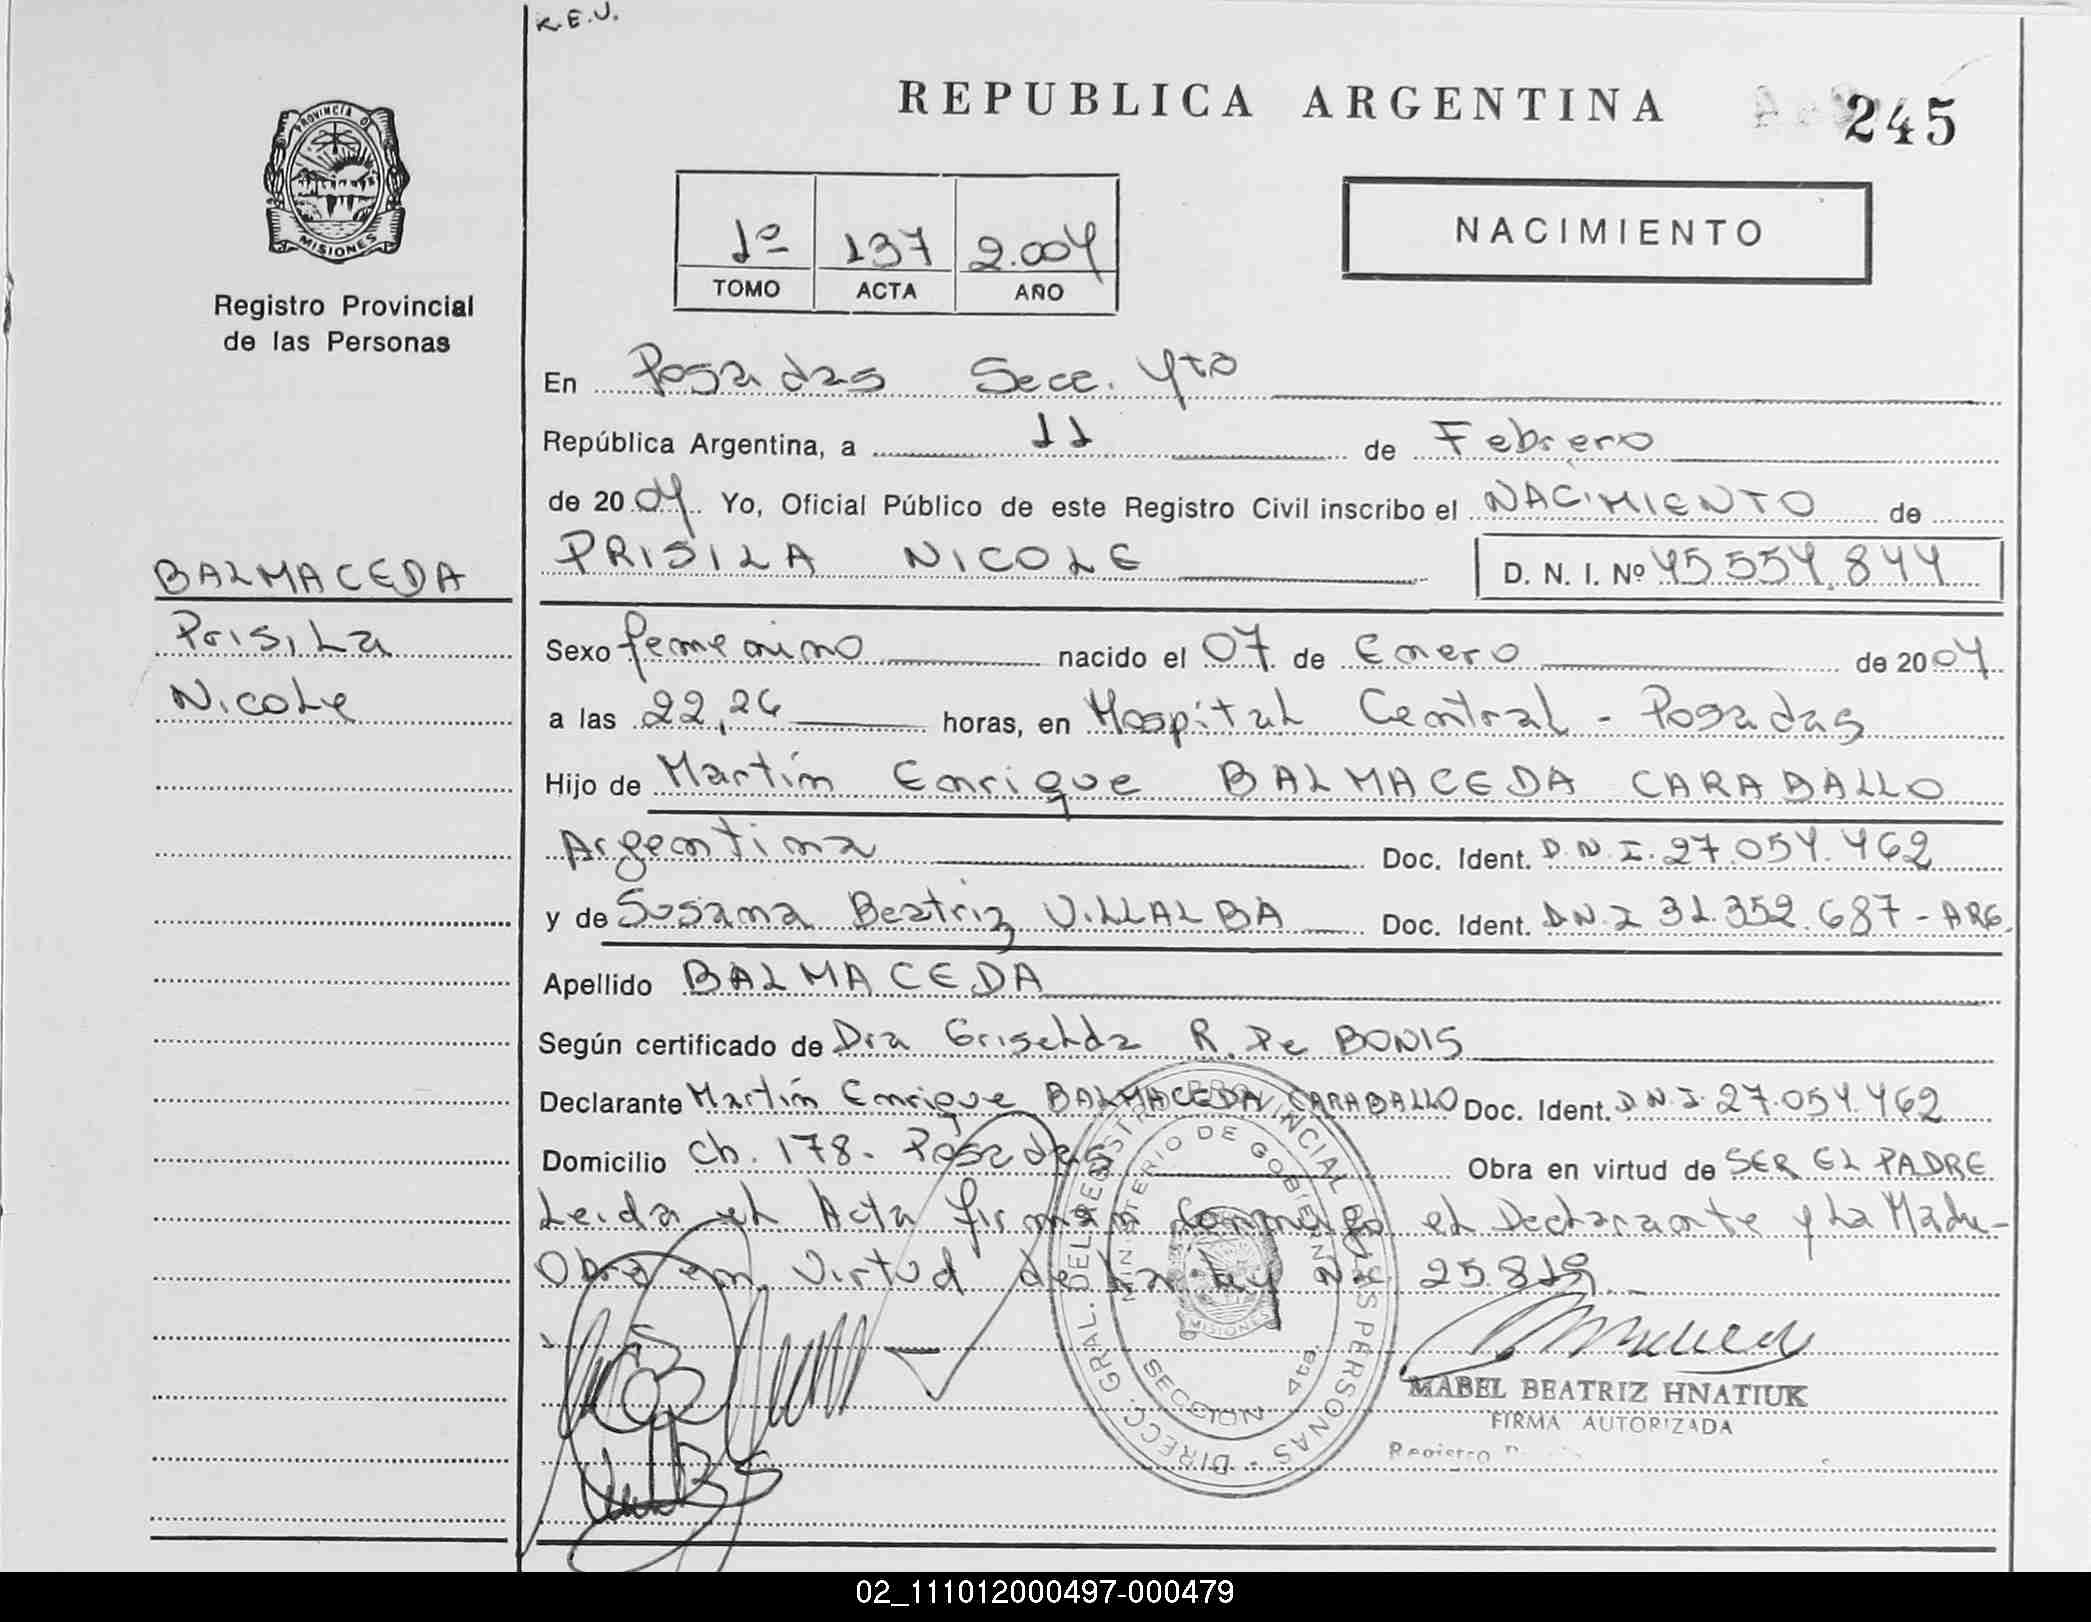 R.E.U.
REPUBLICA ARGENTINA
245
PROVINCIA D
MISIONES
Registro Provincial
de las Personas
1º 137 2.004
TOMO ACTA AÑO
NACIMIENTO
En Posadas Secc. 4ta
República Argentina, a 11 de Febrero
de 2004 Yo, Oficial Público de este Registro Civil inscribo el NACIMIENTO de
PRISILA NICOLE D. N. I. Nº 45.554.844
BALMACEDA
Prisila
Nicole
Sexo femenino nacido el 07 de Enero de 2004
a las 22,26 horas, en Hospital Central - Posadas
Hijo de Martín Enrique BALMACEDA CARABALLO
Argentina Doc. Ident. D.N.I. 27.054.462
y de Susana Beatriz VILLALBA Doc. Ident. D.N.I 31.352.687 - ARG.
Apellido BALMACEDA
Según certificado de Dra Griselda R. De BONIS
Declarante Martín Enrique BALMACEDA CARABALLO Doc. Ident. D.N.I. 27.054.462
Domicilio Ch. 178. Posadas Obra en virtud de SER EL PADRE
Leida el Acta firman conmigo el Declarante y La Madre-
Obra en Virtud de La Ley Nº 25.819.-
DIRECC. GRAL. DEL REGISTRO PROVINCIAL DE LAS PERSONAS
MINISTERIO DE GOBIERNO
MISIONES
SECCION 4ta.
MABEL BEATRIZ HNATIUK
FIRMA AUTORIZADA
Registro
02_111012000497-000479